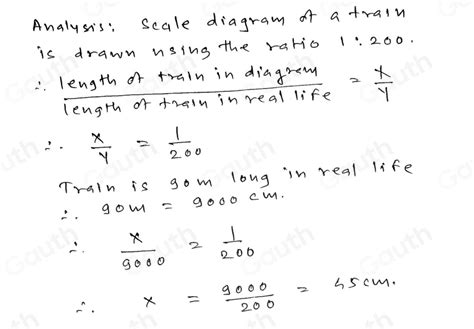 Analysis: Scale diagram of a train
is drawn using the ratio 1:200.
∴ length of train in diagram / length of train in real life = X/Y
∴ X/Y = 1/200
Train is 90m long in real life
∴ 90m = 9000 cm.
∴ X/9000 = 1/200
∴ X = 9000/200 = 45cm.
Gauth